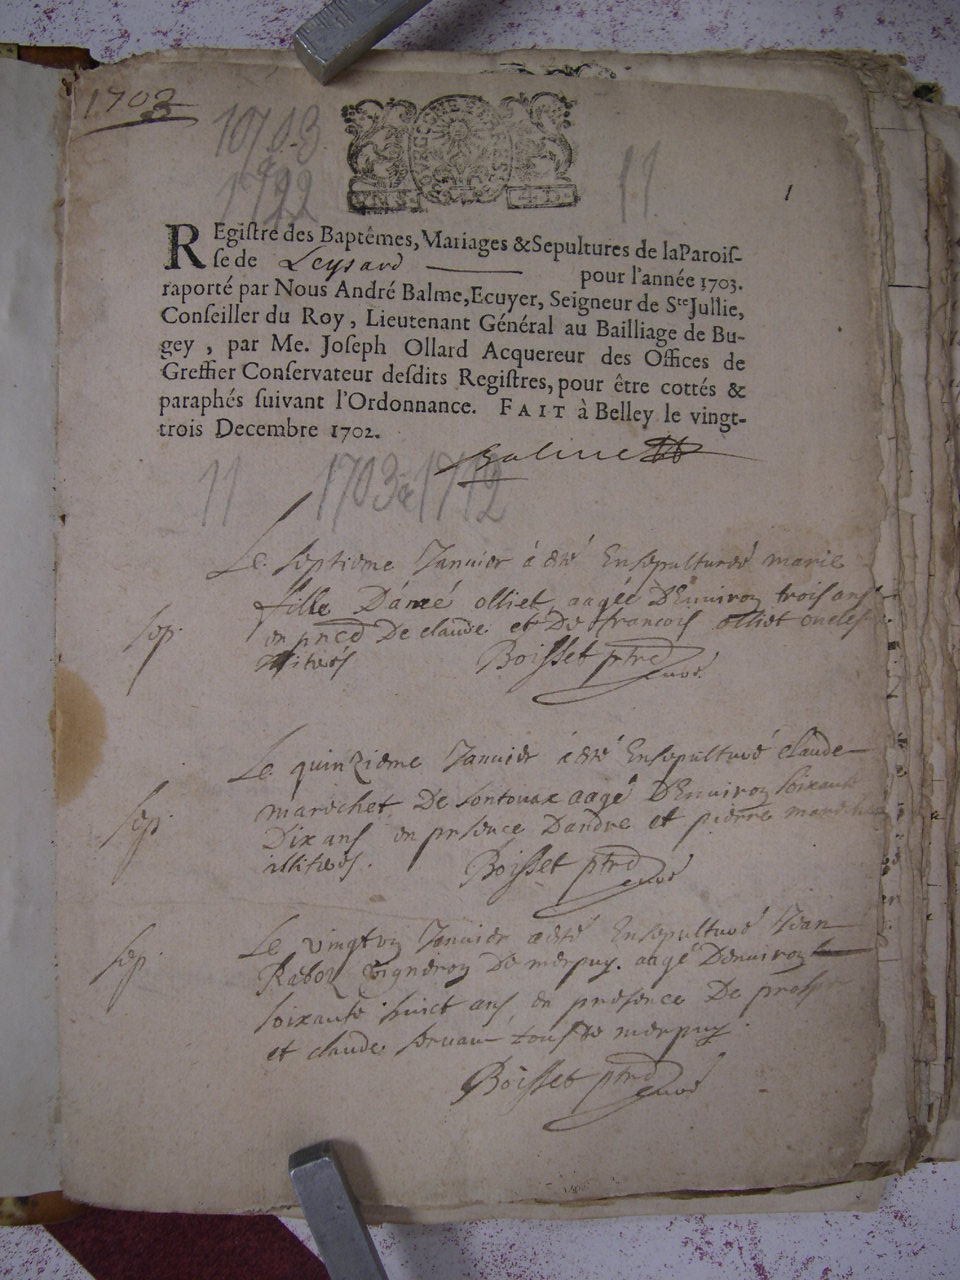 1703
1703
à
1722
11
1
REgistre des Baptêmes, Mariages & Sepultures de la Parois-
se de Leysard pour l'année 1703.
raporté par Nous André Balme, Ecuyer, Seigneur de Ste Jullie,
Conseiller du Roy, Lieutenant Général au Bailliage de Bu-
gey, par Me. Joseph Ollard Acquereur des Offices de
Greffier Conservateur desdits Registres, pour être cottés &
paraphés suivant l'Ordonnance. FAIT à Belley le vingt-
trois Decembre 1702.
Balme
11 1703 à 1712
Le septieme Janvier á été Ensepulturéé marie
fille D'aimé olliet aagée D'Environ trois ans
sep. en pnce De claude et De francois olliet oncles
illiterés Boisset ptre
curé
Le quinzieme Janvier á été Ensepulturé claude
marechet De aagé D'Environ soixante
sep. Dix ans en presence D'andre et pierre
illiterés. Boisset ptre
curé
Le Janvier a été Ensepulturé Jean
sep. vigneron De merpuy. aagé D'environ
soixante huict ans, en presence De
et claude tous de merpuy.
Boisset ptre
curé